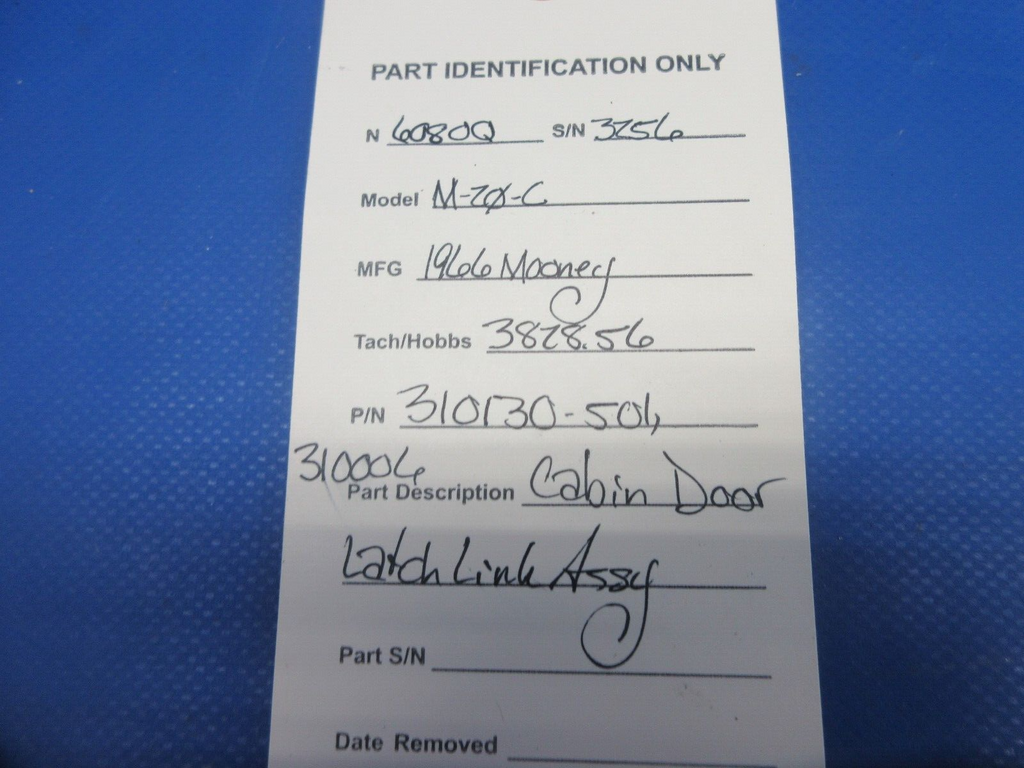 PART IDENTIFICATION ONLY
N 6080Q S/N 3256
Model M-2Ø-C
MFG 1966 Mooney
Tach/Hobbs 3828.56
P/N 310130-501,
310006
Part Description Cabin Door
Latch Link Assy
Part S/N
Date Removed